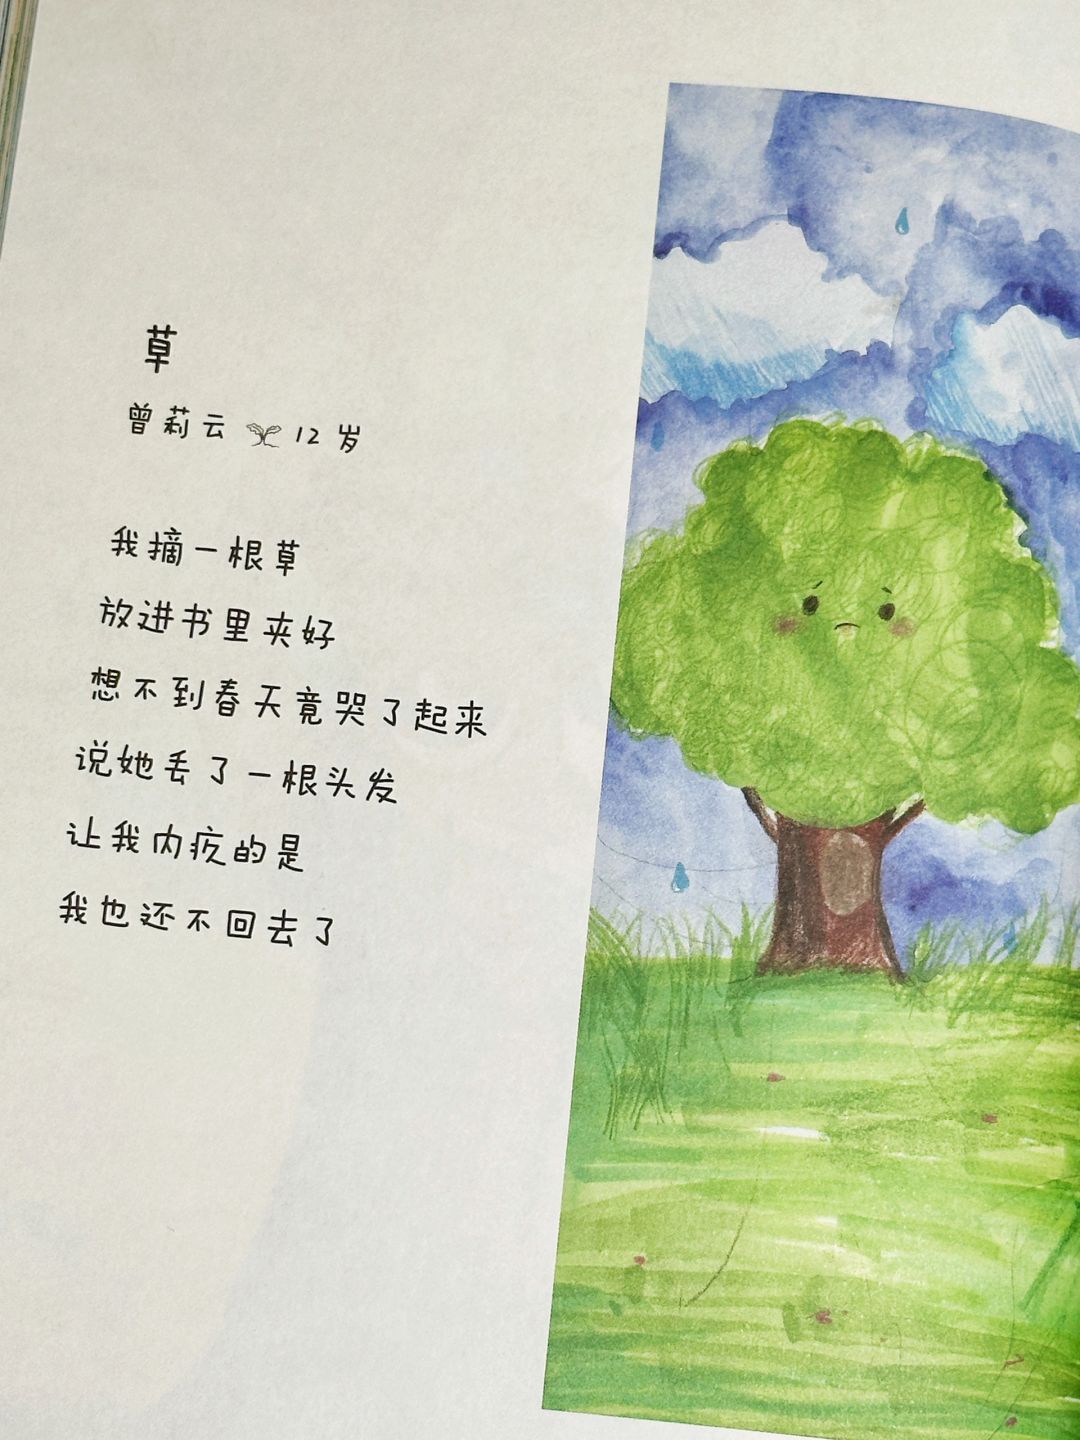 草
曾莉云 12岁
我摘一根草
放进书里夹好
想不到春天竟哭了起来
说她丢了一根头发
让我内疚的是
我也还不回去了